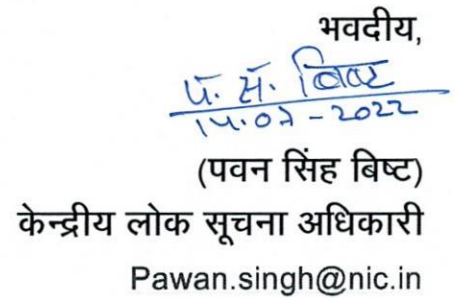 भवदीय,
पं. सिं. बिष्ट
14.07-2022
(पवन सिंह बिष्ट)
केन्द्रीय लोक सूचना अधिकारी
Pawan.singh@nic.in